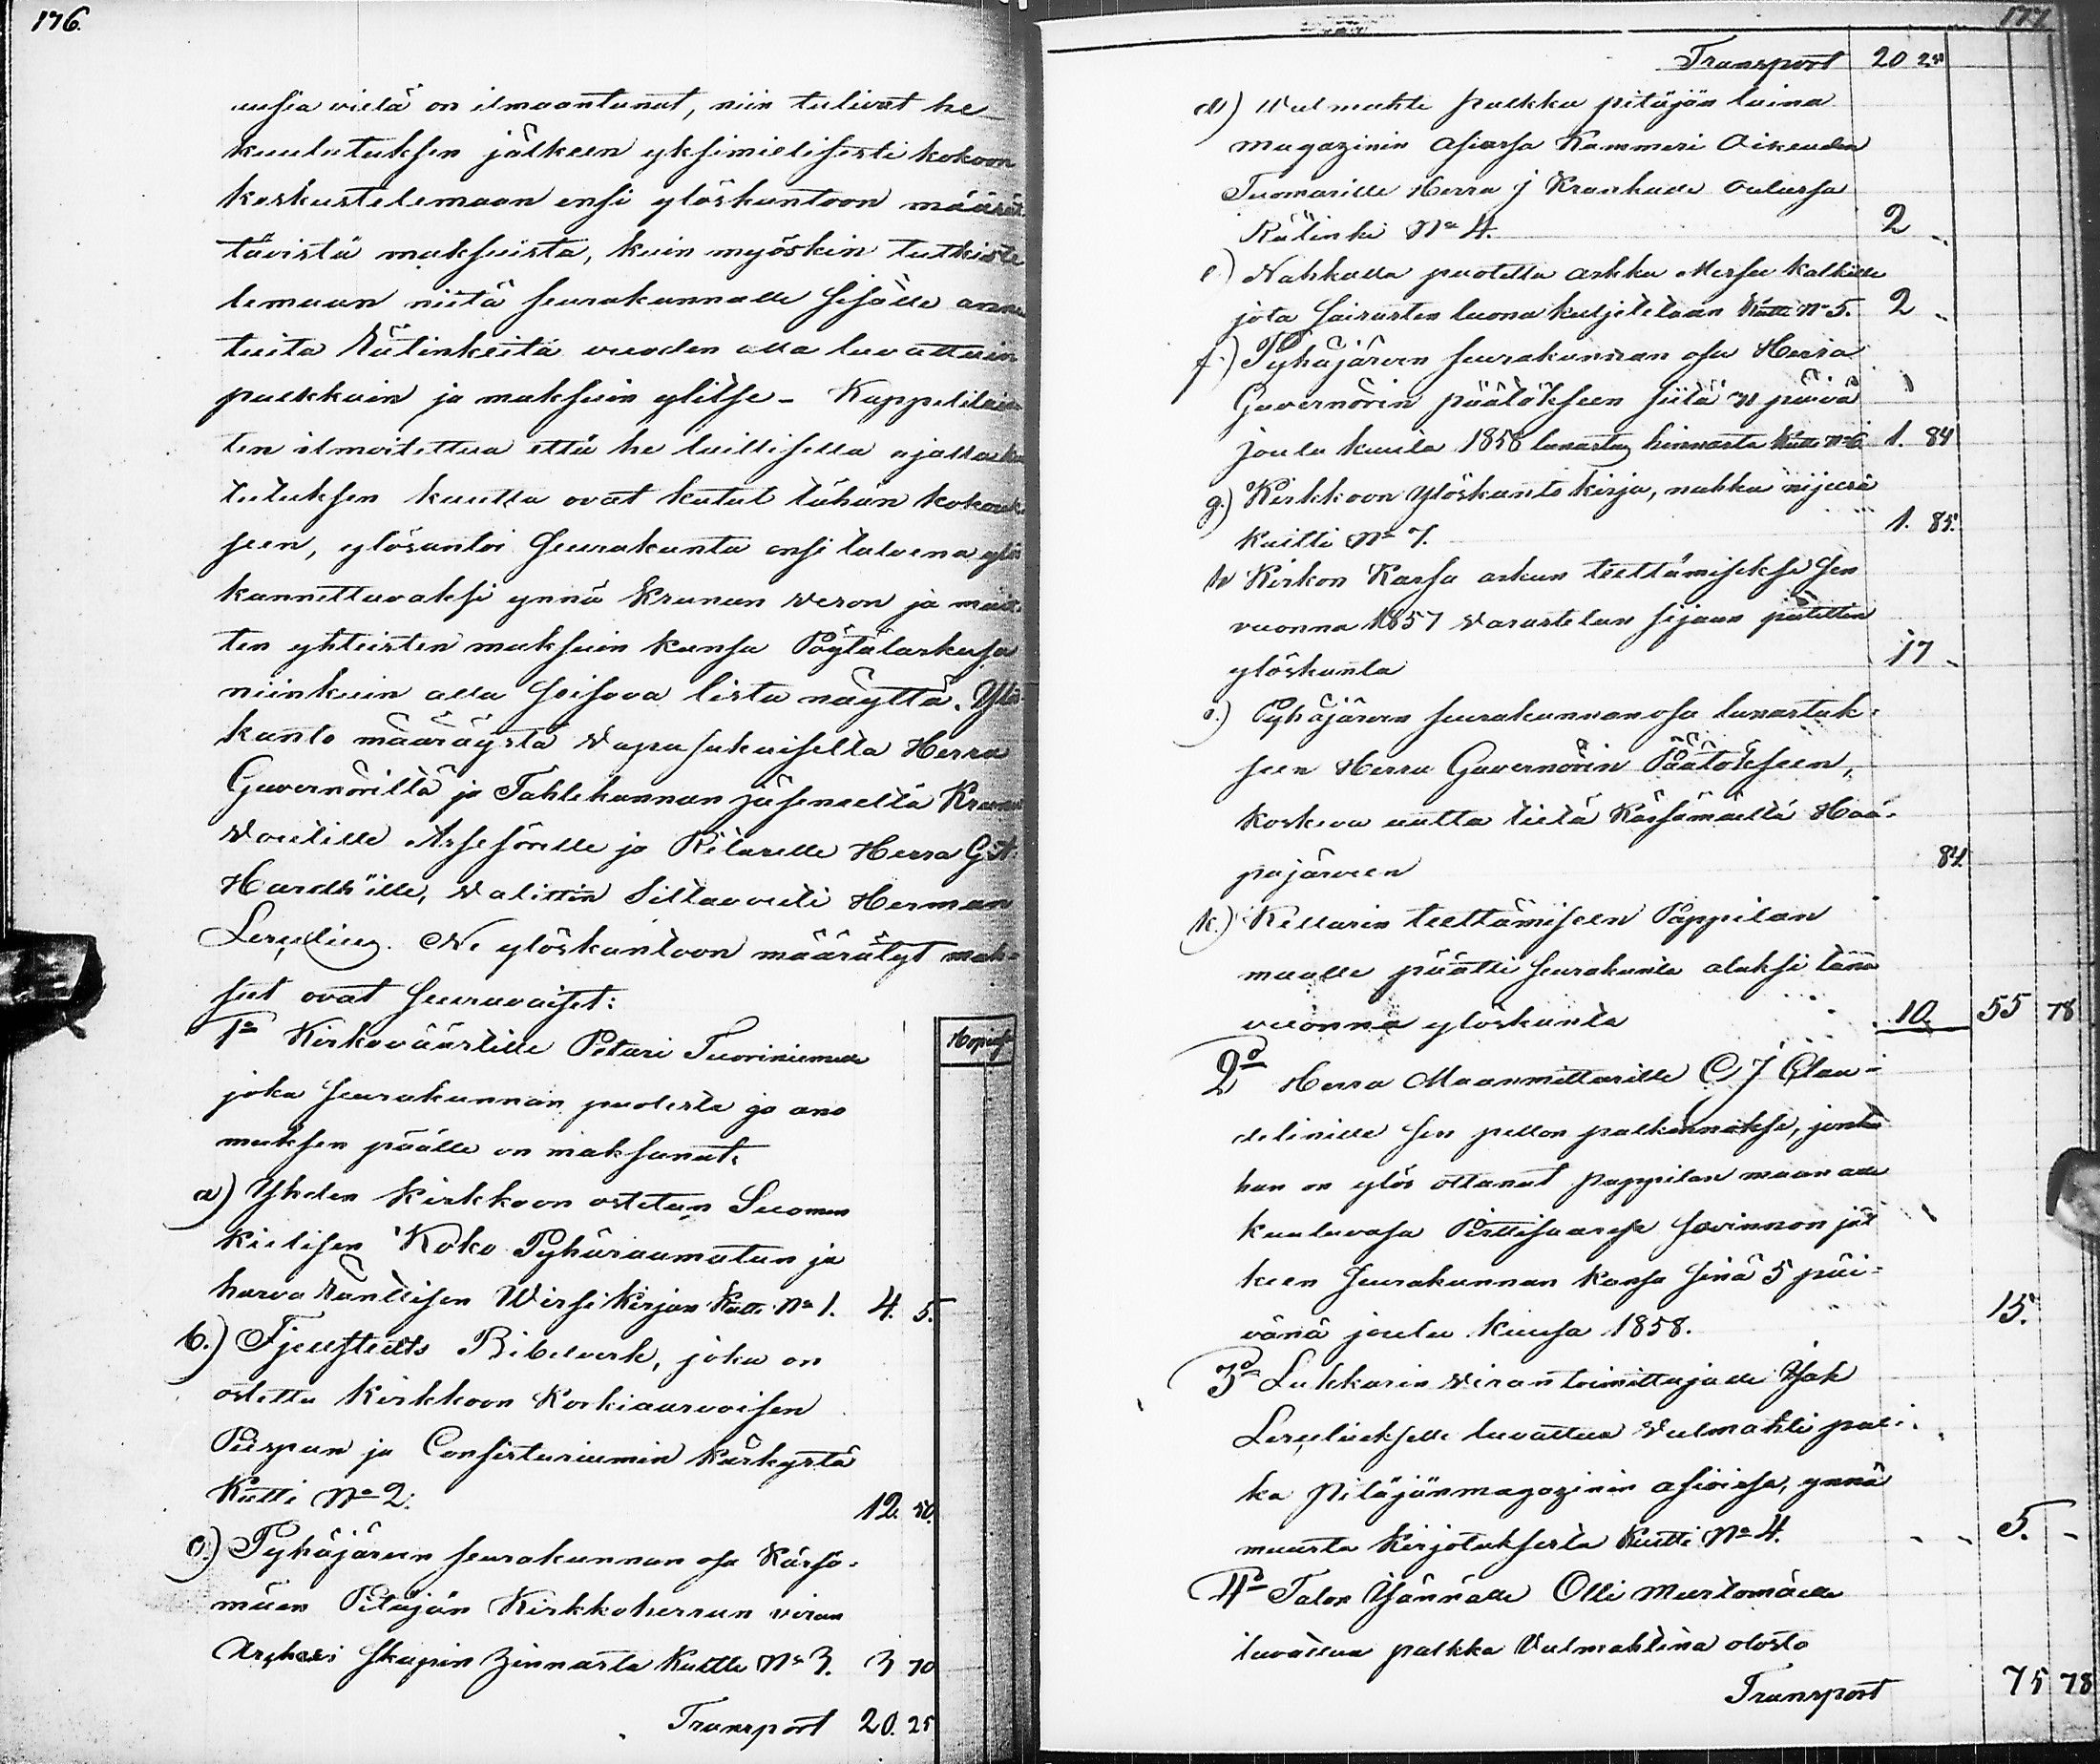 176.
uusia vielä on ilmaantunut, niin tulivat he
kuulutuksen jälkeen yksimielisesti kokoon
keskustelemaan ensi ylöskantoon määrät
tävistä maksuista, kuin myöskin tutkiste
lemaan niitä seurakunnalle sisälle annet
tuita Rätinkeitä vuoden alla luvattuin
palkkain ja maksuin ylitse - Kappelilais
ten ilmoitettua että he laillisella ajalla kuu
lutuksen kautta ovat kutut tähän kokouk
seen, ylösantoi Seurakunta ensi talvena ylös
kannettavaksi ynnä Krunun veron ja mui
ten yhteisten maksuin kansa Pöytälaskusa
niinkuin alla seisova lista näyttä. Ylös
kanto määräystä Vapasukuiselta Herra
Guvernörilta ja Tahlekunnan jäseneeltä Krunun
Voutille Assessörille ja Ritarille Herra G. A.
Hardh'ille, Valittin Siltavouti Herman
Leseelius. Ne ylöskantoon määrätyt mak=
sut ovat seuraavaiset:
Hopias
1o Kirkoväärtille Petari Tuoriniemelle
joka seurakunnan puolesta ja ano
muksen päälle on maksanut.
a) Yhden Kirkkoon ostetun Suomen
kielisen Koko Pyhäraamatun ja
harva Räntlisen Wirsi kirjan Kuitti No 1. 4. 5.
b.) Fjellstedts Bibelverk, joka on
ostettu Kirkkoon Korkiaarvoisen
Piispan ja Consistoriumin käskystä
Kuitti No 2. 12. 50.
c) Pyhäjärven seurakunnan osa Kärsä=
mäen Pitäjän Kirkkoherran viran
Arghess skapin hinnasta Kuitti No 3. 3 70
Transport 20. 25
177
Transport 20 25
d) Valmahti palkka pitäjän laina
magazinin asiassa Kammeri Oikeuden
Tuomarille Herra J Krankulle Oulussa
Rätinki No 4. 2 -
e) Nahkalla puotettu askku Messu kalkille
jota sairasten luona kuljetetaan Kuitti No 5. 2 -
f.) Pyhäjärven seurakunnan osa Herra
Guvernörin päätökseen siitä 31 päivä
Joulu kuula 1858 lunastus hinnasta Kuitti No 6. 1. 84
g.) Kirkkoon Ylöskanto kirja, nahka nijussä
Kuitti No 7. 1. 85.
h Kirkon Kassa arkun teettämiseksi sen
vuonna 1857 Varastetun sijaan päätettin
ylöskanta 17 -
i.) Pyhäjärven seurakunnan osa lunastuk=
seen Herra Guvernörin Päätökseen,
koskeva uutta tietä Kärsämäeltä Haa=
pajärveen 84.
k.) Kellarin teettämiseen Pappilan
maalle päätti seurakunta aluksi tänä
vuonna ylöskanta 10. 55 78
2o Herra Maanmittarille C J Clau=
delinille sen pellon palkinnoksi, jonka
han on ylös ottanut pappilan maan alle
kuuluvasa Pirttisaaressa sovinnon jäl
keen seurakunnan kansa sinä 5 päi=
vänä joulu kuusa 1858. 15.
3o Lukkarin Viran toimittajalle Isak
Leseeliukselle luvattua Valmahti pal=
ka Pitäjänmagazinin asioissa, ynnä
muusta kirjotuksista Kuitti No 4. - - 5. -
4o Talon Isännälle Olli Mustomäelle
luvattua palkka Valmahtina olosta
Transport 75 78